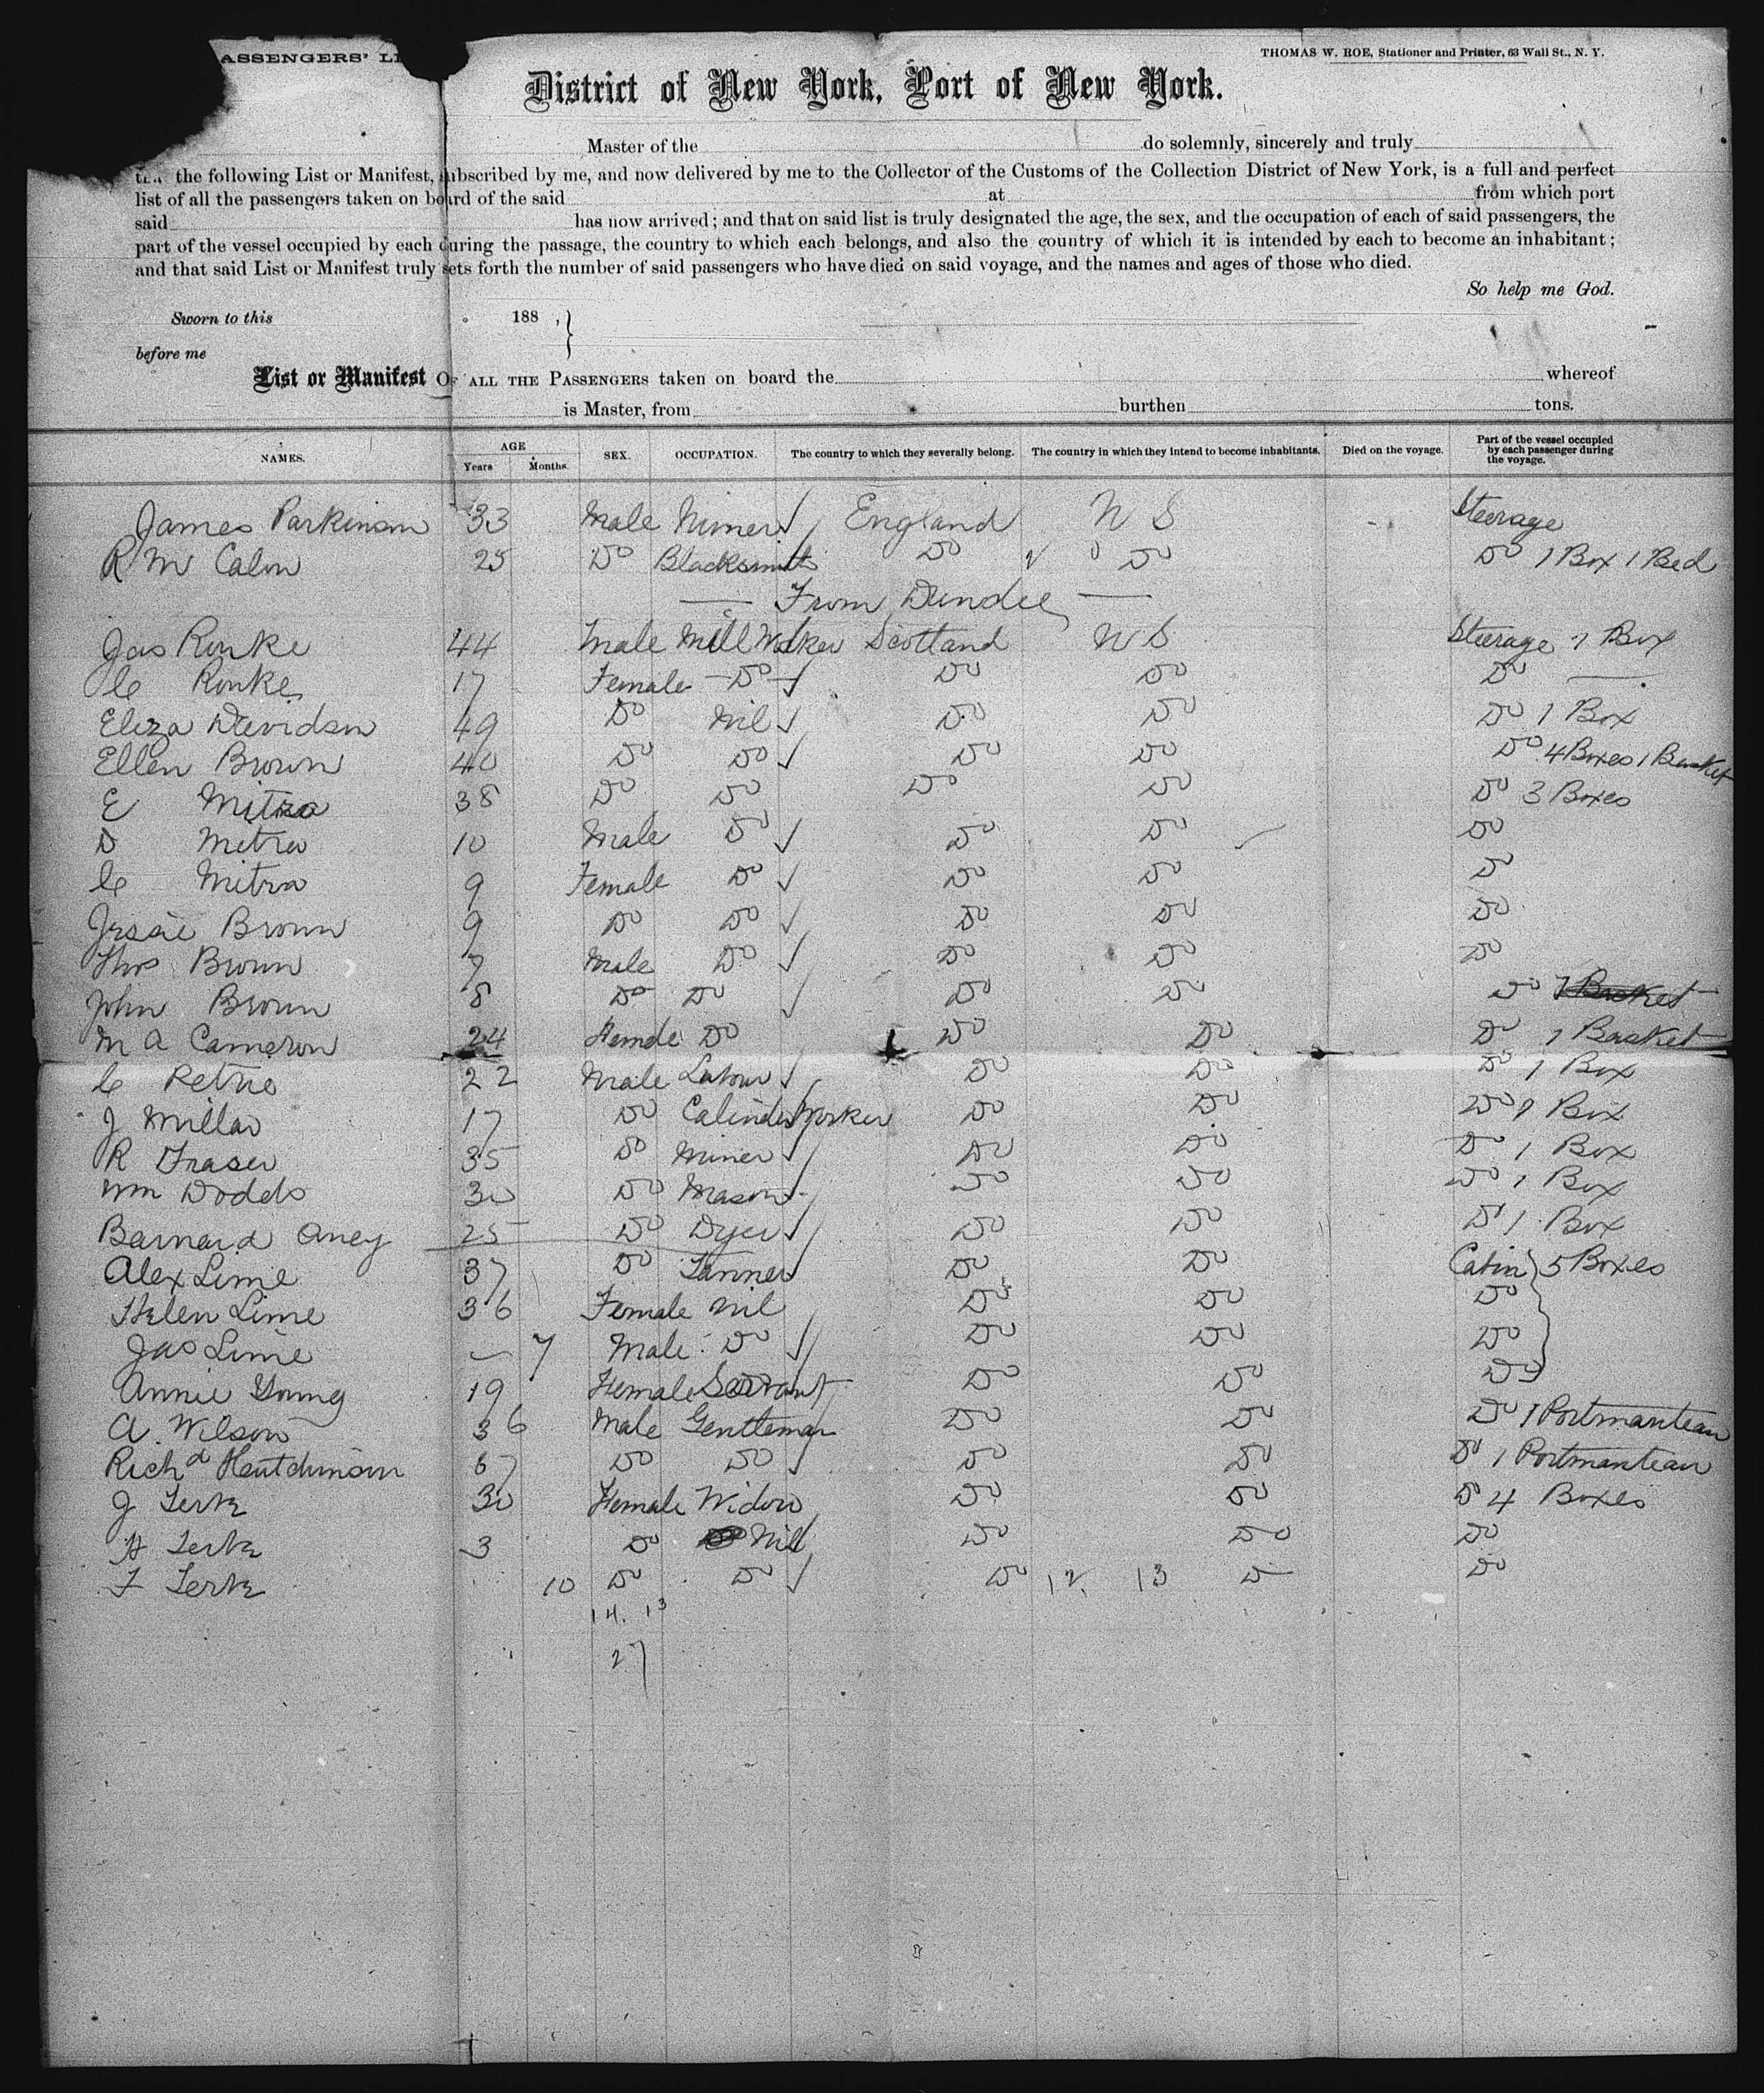 ASSENGERS' LI
THOMAS W. ROE, Stationer and Printer, 63 Wall St., N. Y.
District of New York, Port of New York.
Master of the do solemnly, sincerely and truly
the following List or Manifest, subscribed by me, and now delivered by me to the Collector of the Customs of the Collection District of New York, is a full and perfect
list of all the passengers taken on board of the said at from which port
said has now arrived; and that on said list is truly designated the age, the sex, and the occupation of each of said passengers, the
part of the vessel occupied by each during the passage, the country to which each belongs, and also the country of which it is intended by each to become an inhabitant;
and that said List or Manifest truly sets forth the number of said passengers who have died on said voyage, and the names and ages of those who died.
So help me God.
Sworn to this 188 ,}
before me
List or Manifest OF ALL THE PASSENGERS taken on board the whereof
is Master, from burthen tons.
NAMES. AGE Years Months. SEX. OCCUPATION. The country to which they severally belong. The country in which they intend to become inhabitants. Died on the voyage. Part of the vessel occupied by each passenger during the voyage.
James Parkinson 33 Male Miner England U S Steerage
R Mc 25 Do Blacksmith Do Do Do 1 Box 1 Bed
From Dundee
Jas Rouke 44 Male Mill Worker Scotland U S Steerage 1 Box
C Rouke 17 Female Do Do Do Do
Eliza Davidson 49 Do Nil Do Do Do 1 Box
Ellen Brown 40 Do Do Do Do Do 4 Boxes 1 Basket
E Mitra 38 Do Do Do Do Do 3 Boxes
D Mitra 10 Male Do Do Do Do
C Mitra 9 Female Do Do Do Do
Jessie Brown 9 Do Do Do Do Do
Thos Brown 7 Male Do Do Do Do
John Brown 8 Do Do Do Do Do 1 Basket
M A Cameron 24 Female Do Do Do Do 1 Basket
C Petrie 22 Male Labour Do Do Do 1 Box
J Millar 17 Do Calinder Worker Do Do Do 1 Box
R Fraser 35 Do Miner Do Do Do 1 Box
Wm Dodds 30 Do Mason Do Do Do 1 Box
Barnard Oney 25 Do Dyer Do Do Do 1 Box
Alex Lime 37 Do Tanner Do Do Cabin 5 Boxes
Helen Lime 36 Female Nil Do Do Do
Jas Lime 7 Male Do Do Do Do
Annie Young 19 Female Servant Do Do Do
A. Wilson 36 Male Gentleman Do Do Do 1 Portmanteau
Richd Hutchinson 67 Do Do Do Do Do 1 Portmanteau
J 30 Female Widow Do Do Do 4 Boxes
H 3 Do Nil Do Do Do
F 10 Do Do Do 12. 13 Do Do
14. 13
27